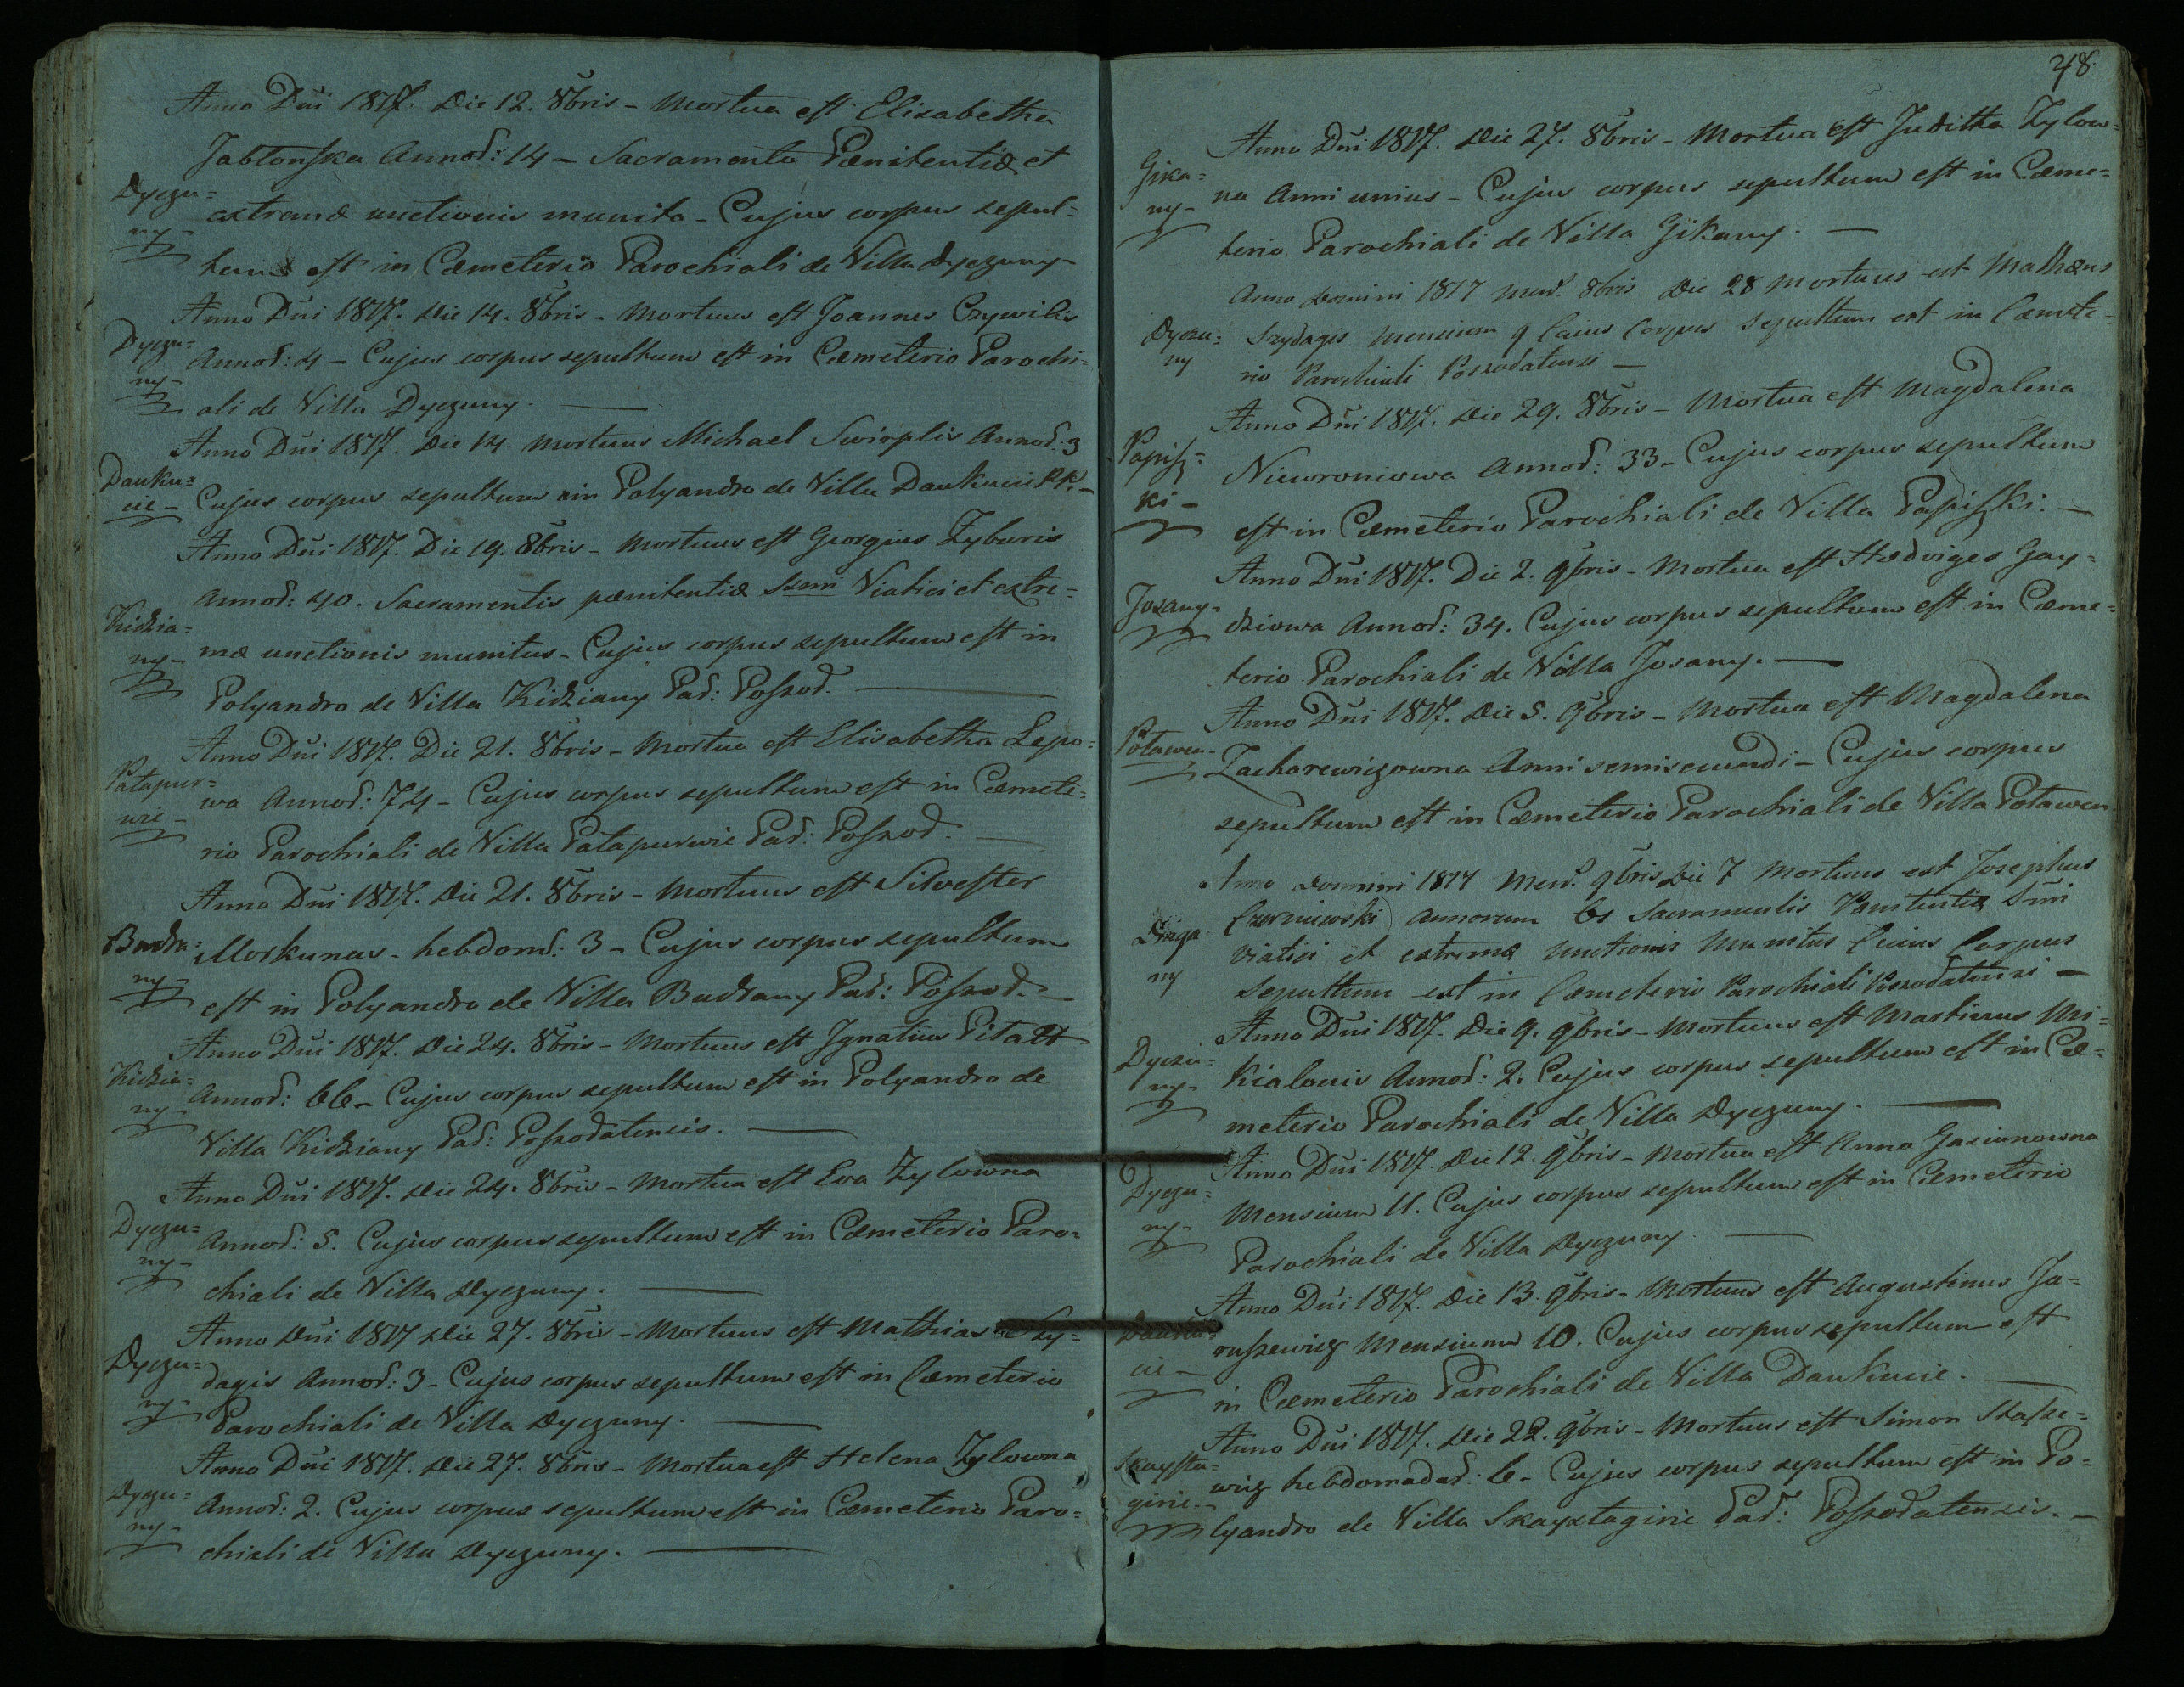 Anno Dñi 1817. Die 12. 8bris - Mortua est Elisabetha
Jabłonska Annoꝝ: 14 - Sacramento Pænitentiæ et
Dyczu=
ny -
extremæ unctionis munita - Cujus corpus sepul=
tum est in Cæmeterio Parochiali de Villa Dyczuny -
Anno Dñi 1817. Die 14. 8bris - Mortuus est Joannes Czywilis
Dyczu=
ny -
Annoꝝ: 4 - Cujus corpus sepultum est in Cæmeterio Parochi=
ali de Villa Dyczuny. —
Anno Dñi 1817. Die 14. Mortuus Michael Swirplis Annoꝝ: 3
Danku=
cie -
Cujus corpus sepultum in Polyandro de Villa Dankucie PP. -
Anno Dñi 1817. Die 19. 8bris - Mortuus est Georgius Zyburis
Annoꝝ: 40. Sacramentis pænitentiæ Ssmi Viatici et extre=
Kidzia=
ny -
mæ unctionis munitus - Cujus corpus sepultum est in
Polyandro de Villa Kidziany Paꝝ: Poszod. —
Anno Dñi 1817. Die 21. 8bris - Mortua est Elisabetha Lepo=
Patapur=
wie -
wa Annoꝝ: 74 - Cujus corpus sepultum est in Cæmete=
rio Parochiali de Villa Patapurwie Paꝝ: Poszod. —
Anno Dñi 1817. Die 21. 8bris - Mortuus est Silvester
Budra=
ny -
Morkunas - hebdomꝝ: 3 - Cujus corpus sepultum
est in Polyandro de Villa Budrany Paꝝ: Poszod. -
Anno Dñi 1817. Die 24. 8bris - Mortuus est Jgnatius Pitatt
Kidzia=
ny -
Annoꝝ: 66 - Cujus corpus sepultum est in Polyandro de
Villa Kidziany Paꝝ: Poszodatensis. —
Anno Dñi 1817. Die 24. 8bris - Mortua est Eva Zylowna
Dyczu=
ny -
Annoꝝ: 5. Cujus corpus sepultum est in Cæmeterio Paro=
chiali de Villa Dyczuny. —
Anno Dñi 1817 Die 27. 8bris - Mortuus est Mathias
Dyczu=
ny -
dagis Annoꝝ: 3 - Cujus corpus sepultum est in Cæmeterio
Parochiali de Villa Dyczuny. —
Anno Dñi 1817. Die 27. 8bris - Mortua est Helena Zylowna
Dyczu=
ny -
Annoꝝ: 2. Cujus corpus sepultum est in Cæmeterio Paro=
chiali de Villa Dyczuny. —
48.
Anno Dñi 1817. Die 27. 8bris - Mortua est Juditha Zylow=
Gika=
ny -
na Anni unius - Cujus corpus sepultum est in Cæme=
terio Parochiali de Villa Gikany. —
Anno Domini 1817 8bris Die 28 Mortuus est Mathæus
Dyczu=
ny
Szydagis Mensium 9 Cuius Corpus Sepultum est in Cæmete=
rio Parochiali Poszodatensi —
Anno Dñi 1817. Die 29. 8bris - Mortua est Magdalena
Papisz=
ki -
Niewroniowa Annoꝝ: 33 - Cujus corpus sepultum
est in Cæmeterio Parochiali de Villa Papiszki. —
Anno Dñi 1817. Die 2. 9bris - Mortua est Hedviges Gay=
Josany -
dziowa Annoꝝ: 34. Cujus corpus sepultum est in Cæme=
terio Parochiali de Villa Josany. —
Anno Dñi 1817. Die 5. 9bris - Mortua est Magdalena
Potawen -
Zacharewiczowna Anni semisecundi - Cujus corpus
sepultum est in Cæmeterio Parochiali de Villa Potawen
Anno Domini 1817 9bris Die 7 Mortuus est Josephus
ny
Czerniewski Annorum Sacramentis Pænitentiæ Smi
Viatici et extremæ Unctionis Munitus Cuius Corpus
Sepultum est in Cæmeterio Parochiali Poszodatensi —
Anno Dñi 1817. Die 9. 9bris - Mortuus est Martinus Mi=
Dyczu=
ny -
kialonis Annoꝝ: 2. Cujus corpus sepultum est in Cæ=
meterio Parochiali de Villa Dyczuny. —
Anno Dñi 1817. Die 12. 9bris - Mortua est Anna Gasiunowna
Dyczu=
ny -
Mensium 11. Cujus corpus sepultum est in Cæmeterio
Parochiali de Villa Dyczuny. —
Anno Dñi 1817. Die 13. 9bris - Mortuus est Augustinus Ja=
Danku=
cie -
ruszewicz Mensium 10. Cujus corpus sepultum est
in Cæmeterio Parochiali de Villa Dankucie. —
Anno Dñi 1817. Die 22. 9bris - Mortuus est Simon Stasze=
Skaysta=
girie -
wicz hebdomadaꝝ: 6 - Cujus corpus sepultum est in Po=
lyandro de Villa Skaystagirie Paꝝ: Poszodatensis. -